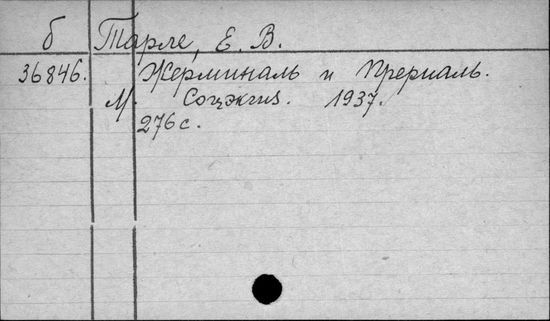 б Тарле, Е. В.
36846. Жерминаль и Прериаль.
М. Соцэкгиз. 1937.
276 с.